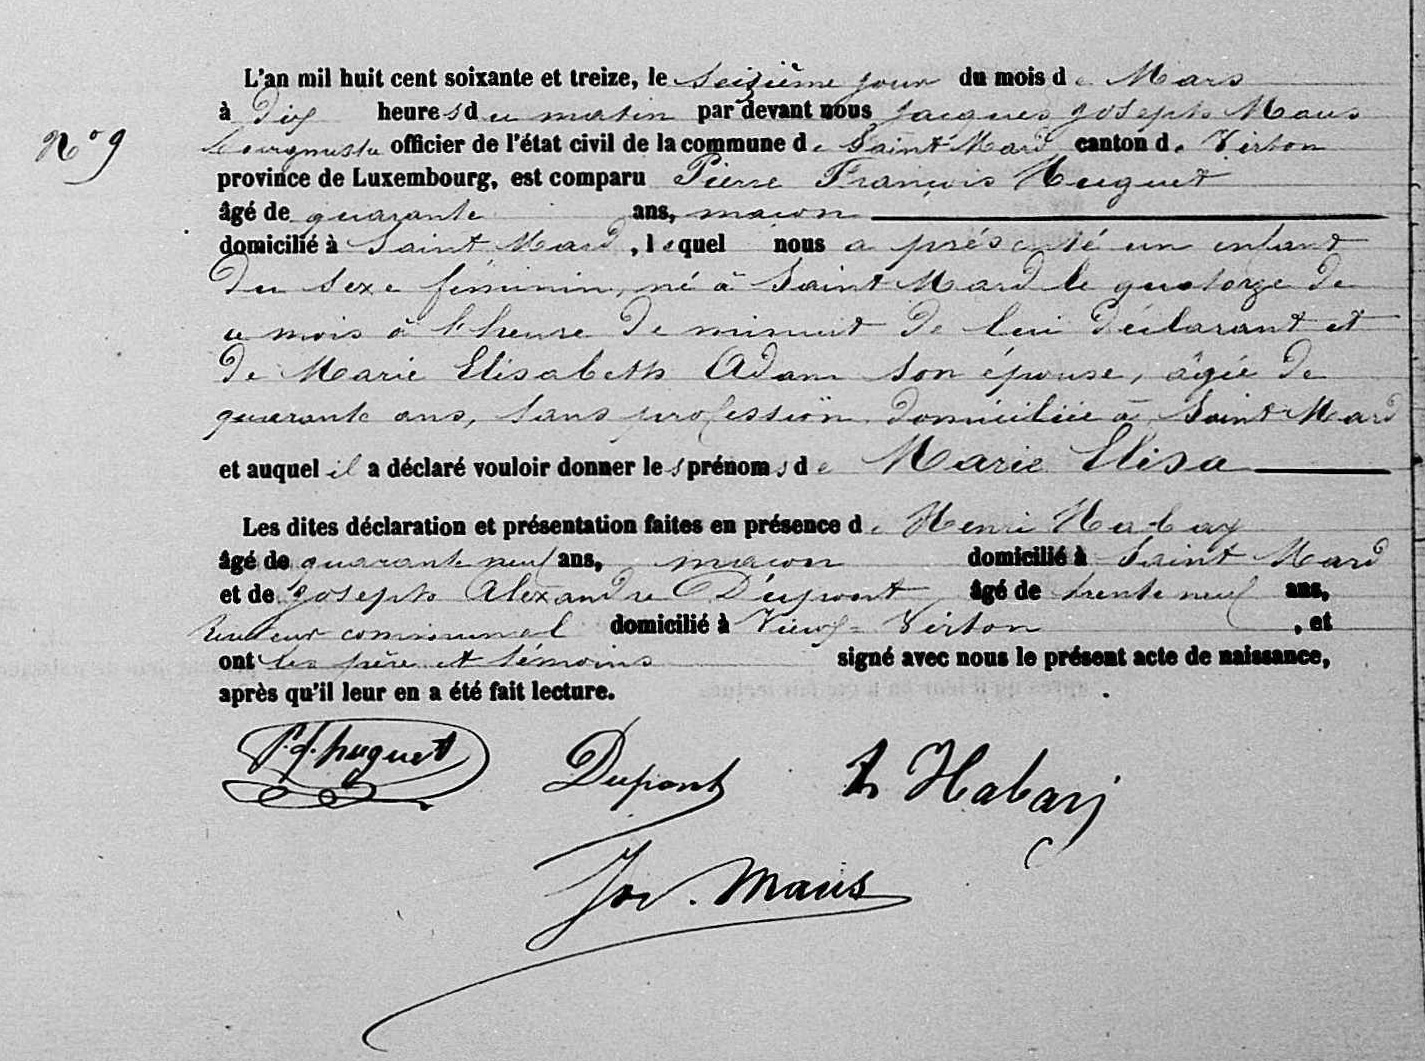 L'an mil huit cent soixante et treize, le seizième jour du mois de Mars
à dix heures du matin par devant nous Jacques Joseph Maus
N° 9
bourgmestre officier de l'état civil de la commune de Saint Mard canton de Virton
province de Luxembourg, est comparu Pierre François Huguet
âgé de quarante ans, macon
domicilié à Saint Mard, lequel nous a présenté un enfant
du sexe féminin, né à Saint Mard le quatorze de
ce mois à l'heure de minuit de lui déclarant et
de Marie Elisabeth Adam son épouse, âgée de
quarante ans, sans profession domiciliée à Saint Mard
et auquel il a déclaré vouloir donner les prénoms de Marie Elisa
Les dites déclaration et présentation faites en présence de Henri Habay
âgé de quarante neuf ans, macon domicilié à Saint Mard
et de Joseph Alexandre Dupont âgé de trente neuf ans,
receveur communal domicilié à Vieux-Virton, et
ont les père et témoins signé avec nous le présent acte de naissance,
après qu'il leur en a été fait lecture.
P. f. huguet Dupont h Habay
Jos. Maus